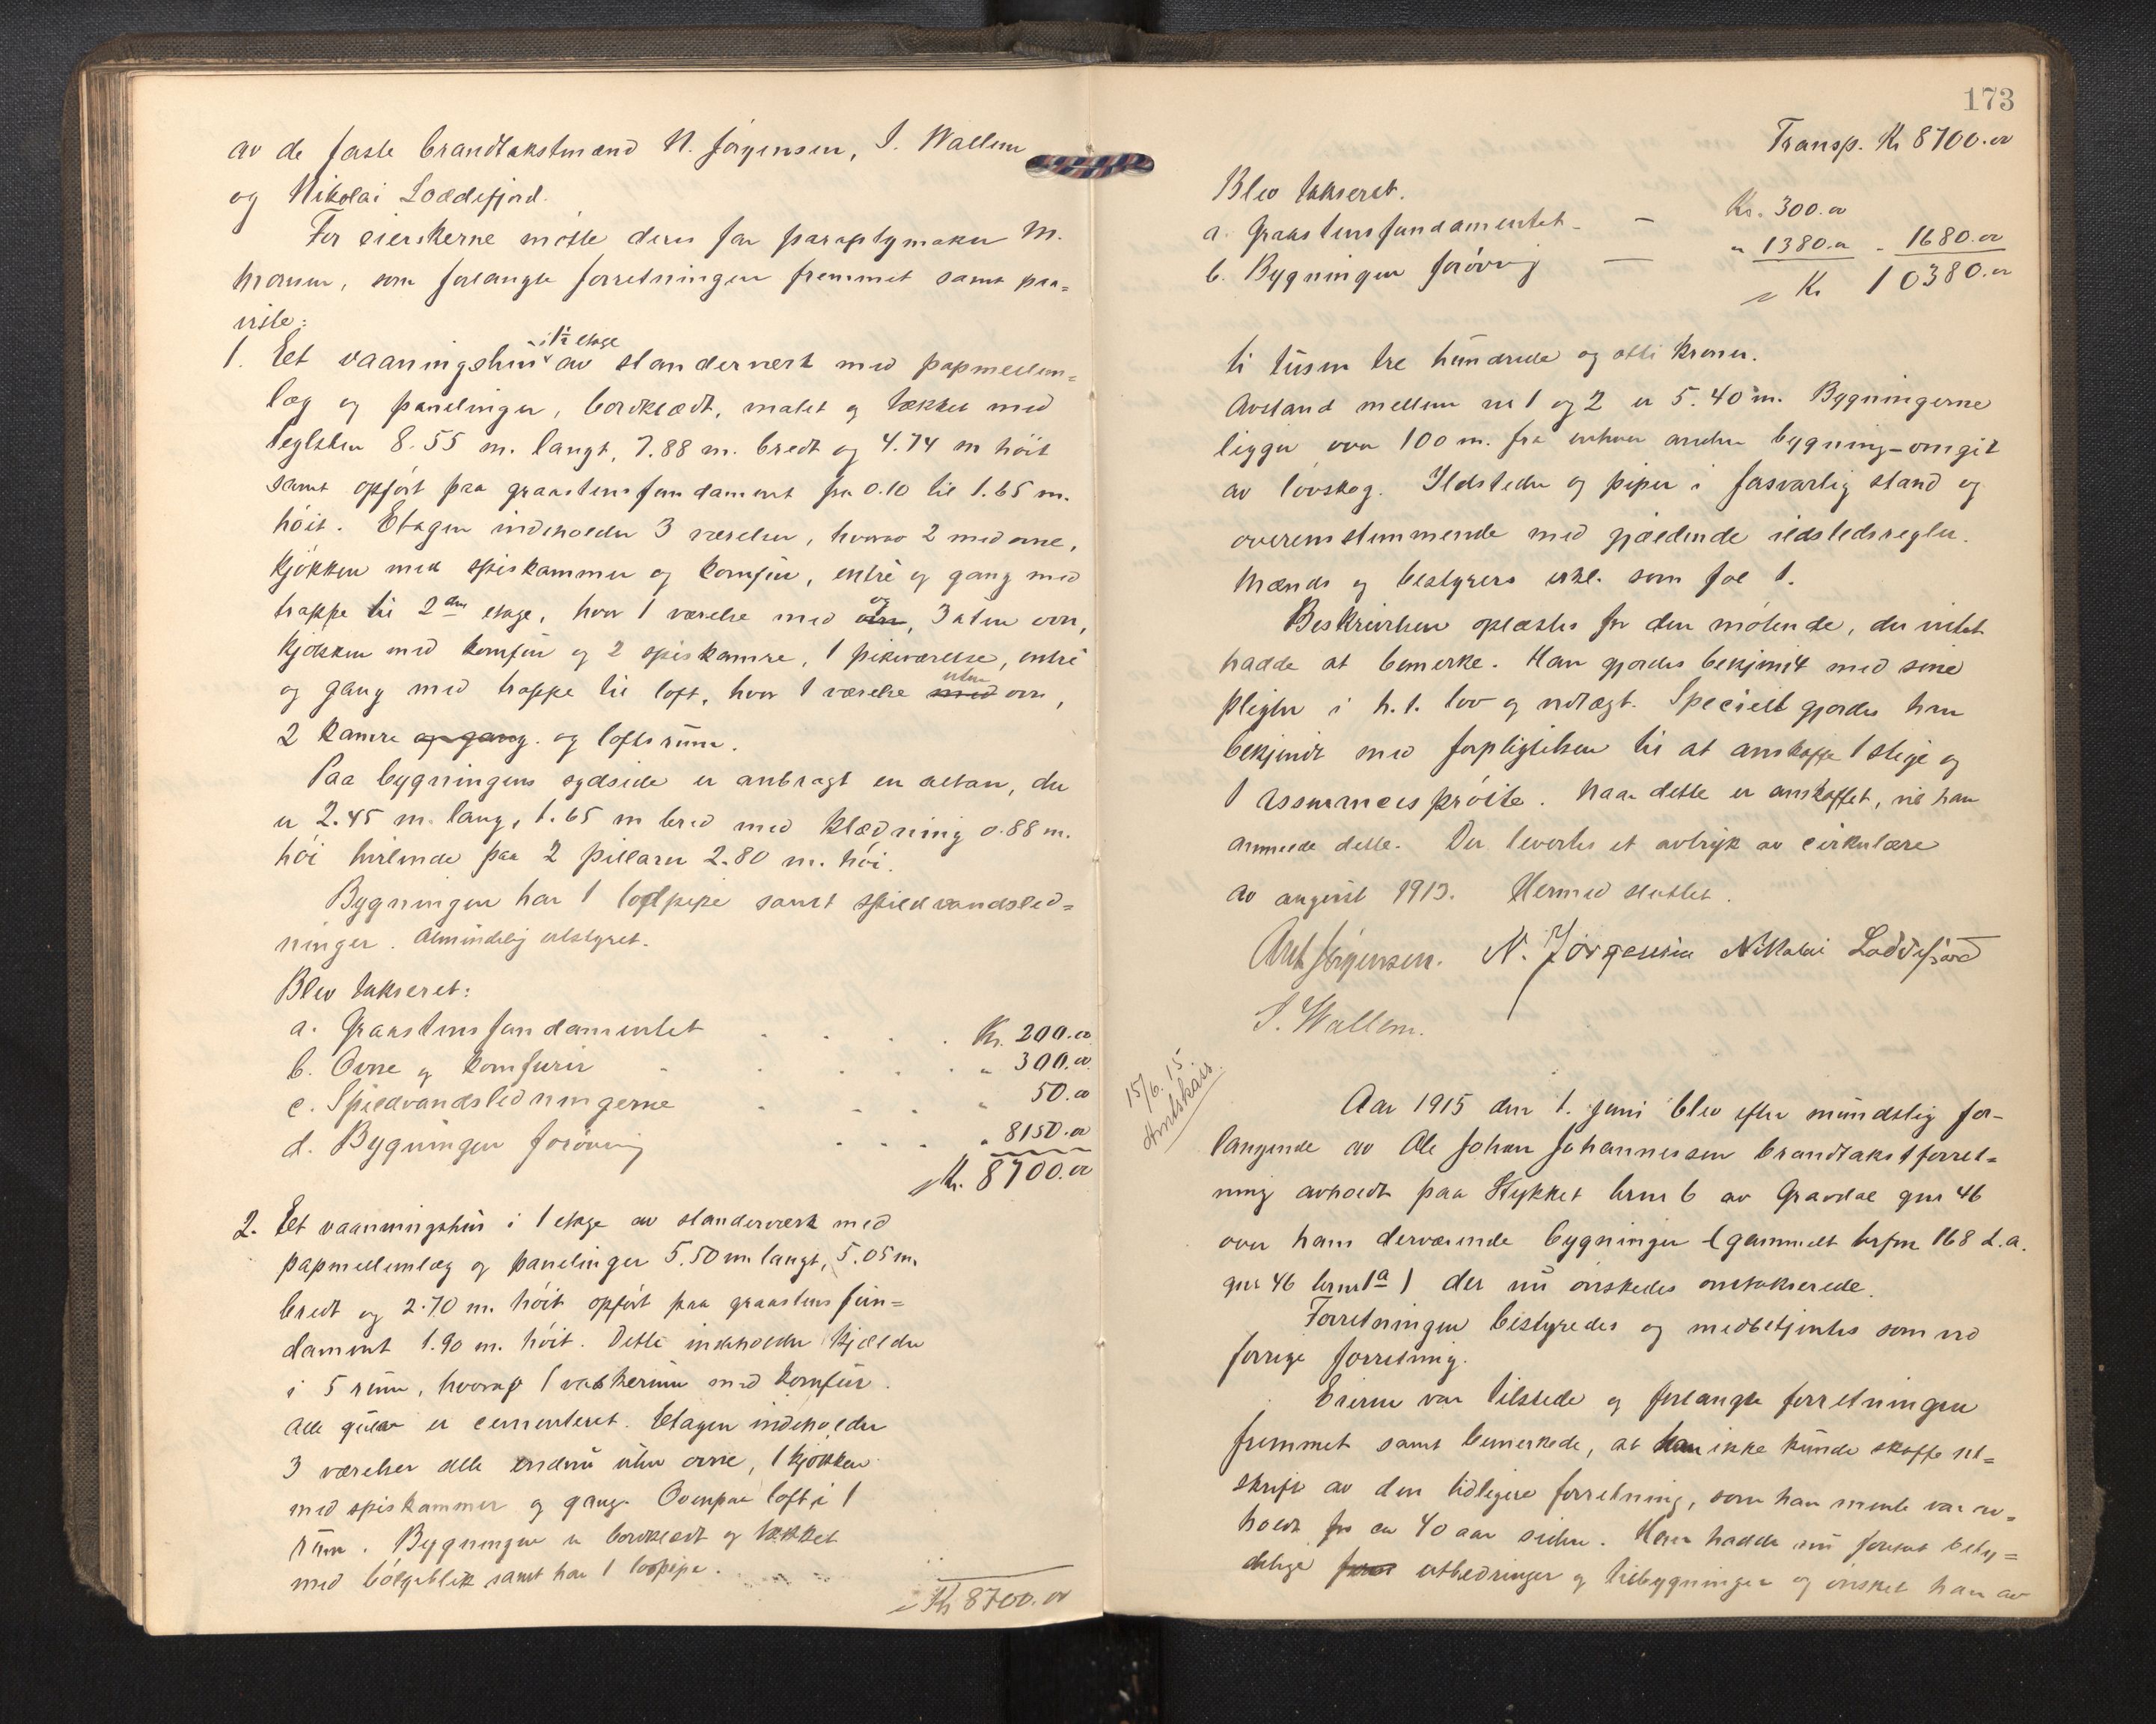 av de faste brandtakstmænd N. Jørgensen, S. Wallem
og Nikolai Loddefjord.
For eierskerne møtte deres far paraplymaker M.
Monsen, som forlangte forretningen fremmet samt paa=
viste:
1. Et vaaningshus i 1½ etage av standerverk med papmellem=
læg og panelinger, bordklædt, malet og tækket med
teglsten 8.55 m. langt, 7.88 m. bredt og 4.74 m høit
samt opført paa graastensfundament fra 0.10 til 1.65 m.
høit. Etagen indeholder 3 værelser, hvorav 2 med ovne,
kjøkken med spiskammer og komfur, entré og gang med
trappe til 2den etage, hvor 1 værelse med og 3 uten ovn,
kjøkken med komfur og 2 spiskamre, 1 pikeværelse, entré
og gang med trappe til loft, hvor 1 værelse uten ovn,
2 kamre og gang. og loftsrum.
Paa bygningens sydside er anbragt en altan, der
er 2.45 m. lang, 1.65 m bred med klædning 0.88 m.
høi hvilende paa 2 pillarer 2.80 m. høi.
Bygningen har 1 lodpipe samt spildvandsled=
ninger. Almindelig utstyret.
Blev takseret:
a. Graastensfundamentet . . . . Kr. 200.00
b. Ovne og komfurer . . . . " 300.00
c. Spildvandsledningerne . . . " 50.00
d. Bygningen forøvrig . . . " 8150.00
Kr. 8700.00
2. Et vaaningshus i 1 etage av standerverk med
papmellemlæg og panelinger 5.50 m. langt, 5.05 m.
bredt og 2.70 m. høit opført paa graastensfun=
dament 1.90 m. høit. Dette indeholder kjælder
i 5 rum, hvorav 1 vaskerum med komfur.
Alle gulve er cementeret. Etagen indeholder
3 værelser alle endnu uten ovne, 1 kjøkken
med spiskammer og gang. Ovenpaa loft i 1
rum. Bygningen er bordklædt og tækket
med bølgeblik samt har 1 lodpipe.
Kr 8700.00
173
Transp. Kr 8700.00
Blev takseret.
a. Graastensfundamentet - — Kr. 300.00
b. Bygningen forøvrig — " 1380.00 - 1680.00
Kr 10380.00
ti tusen tre hundrede og otti kroner.
Avstand mellem nr 1 og 2 er 5.40 m. Bygningerne
ligger over 100 m. fra enhver anden bygning - omgit
av løvskog. Ildsteder og piper i forsvarlig stand og
overensstemmende med gjældende ildstedsregler.
Mænds og bestyrers erkl. som fol 1.
Beskrivelsen oplæstes for den møtende, der intet
hadde at bemerke. Han gjordes bekjendt med sine
pligter i h. t. lov og vedtægt. Specielt gjordes han
bekjendt med forpligtelsen til at anskaffe 1 stige og
1 assurancesprøite. Naar dette er anskaffet, vil han
anmelde dette. Der levertes et avtryk av cirkulære
av august 1913. Hermed sluttet.
Arnt Jørgensen. N. Jørgensen Nikolai Loddefjord
S. Wallem.
15/6. 15.
Amtskass.
Aar 1915 den 1. juni blev efter mundtlig for-
langende av Ole Johan Johannessen brandtakstforret=
ning avholdt paa Stykket brnr 6 av Gravdal gnr 46
over hans derværende bygninger (gammelt brfnr 168 L.a.
gnr 46 brnr 1a) der nu ønskedes omtakserede.
Forretningen bestyredes og medbetjentes som ved
forrige forretning.
Eieren var tilstede og forlangte forretningen
fremmet samt bemerkede, at han ikke kunde skaffe ut=
skrift av den tidligere forretning, som han mente var av=
holdt for ca 40 aar siden. Han hadde nu foretat bety=
delige utbedringer og tilbygninger og ønsket han av